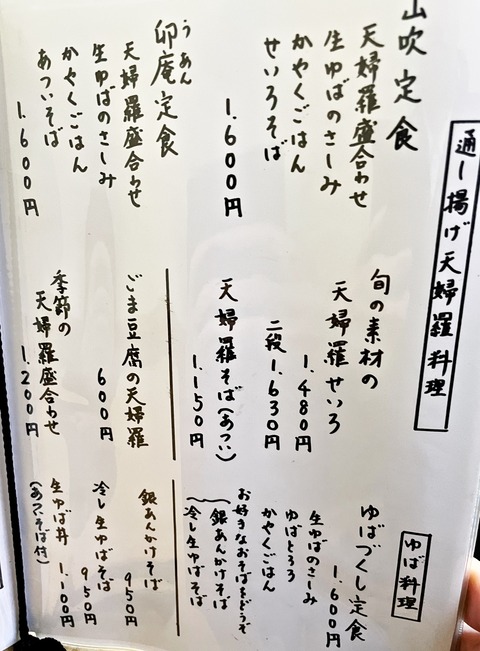 通し揚げ天婦羅料理
山吹定食
天婦羅盛合わせ
生ゆばのさしみ
かやくごはん
せいろそば
1.600円
うあん
卯庵定食
天婦羅盛合わせ
生ゆばのさしみ
かやくごはん
あついそば
1.600円
旬の素材の
天婦羅せいろ
1.480円
二段 1.630円
天婦羅そば(あつい)
1.150円
ごま豆腐の天婦羅
600円
季節の
天婦羅盛合わせ
1.200円
ゆば料理
ゆばづくし定食
1.600円
生ゆばのさしみ
ゆばとろろ
かやくごはん
お好きなおそばをどうぞ
銀あんかけそば
冷し生ゆばそば
銀あんかけそば
950円
冷し生ゆばそば
950円
生ゆば丼 1.100円
(あついそば付)